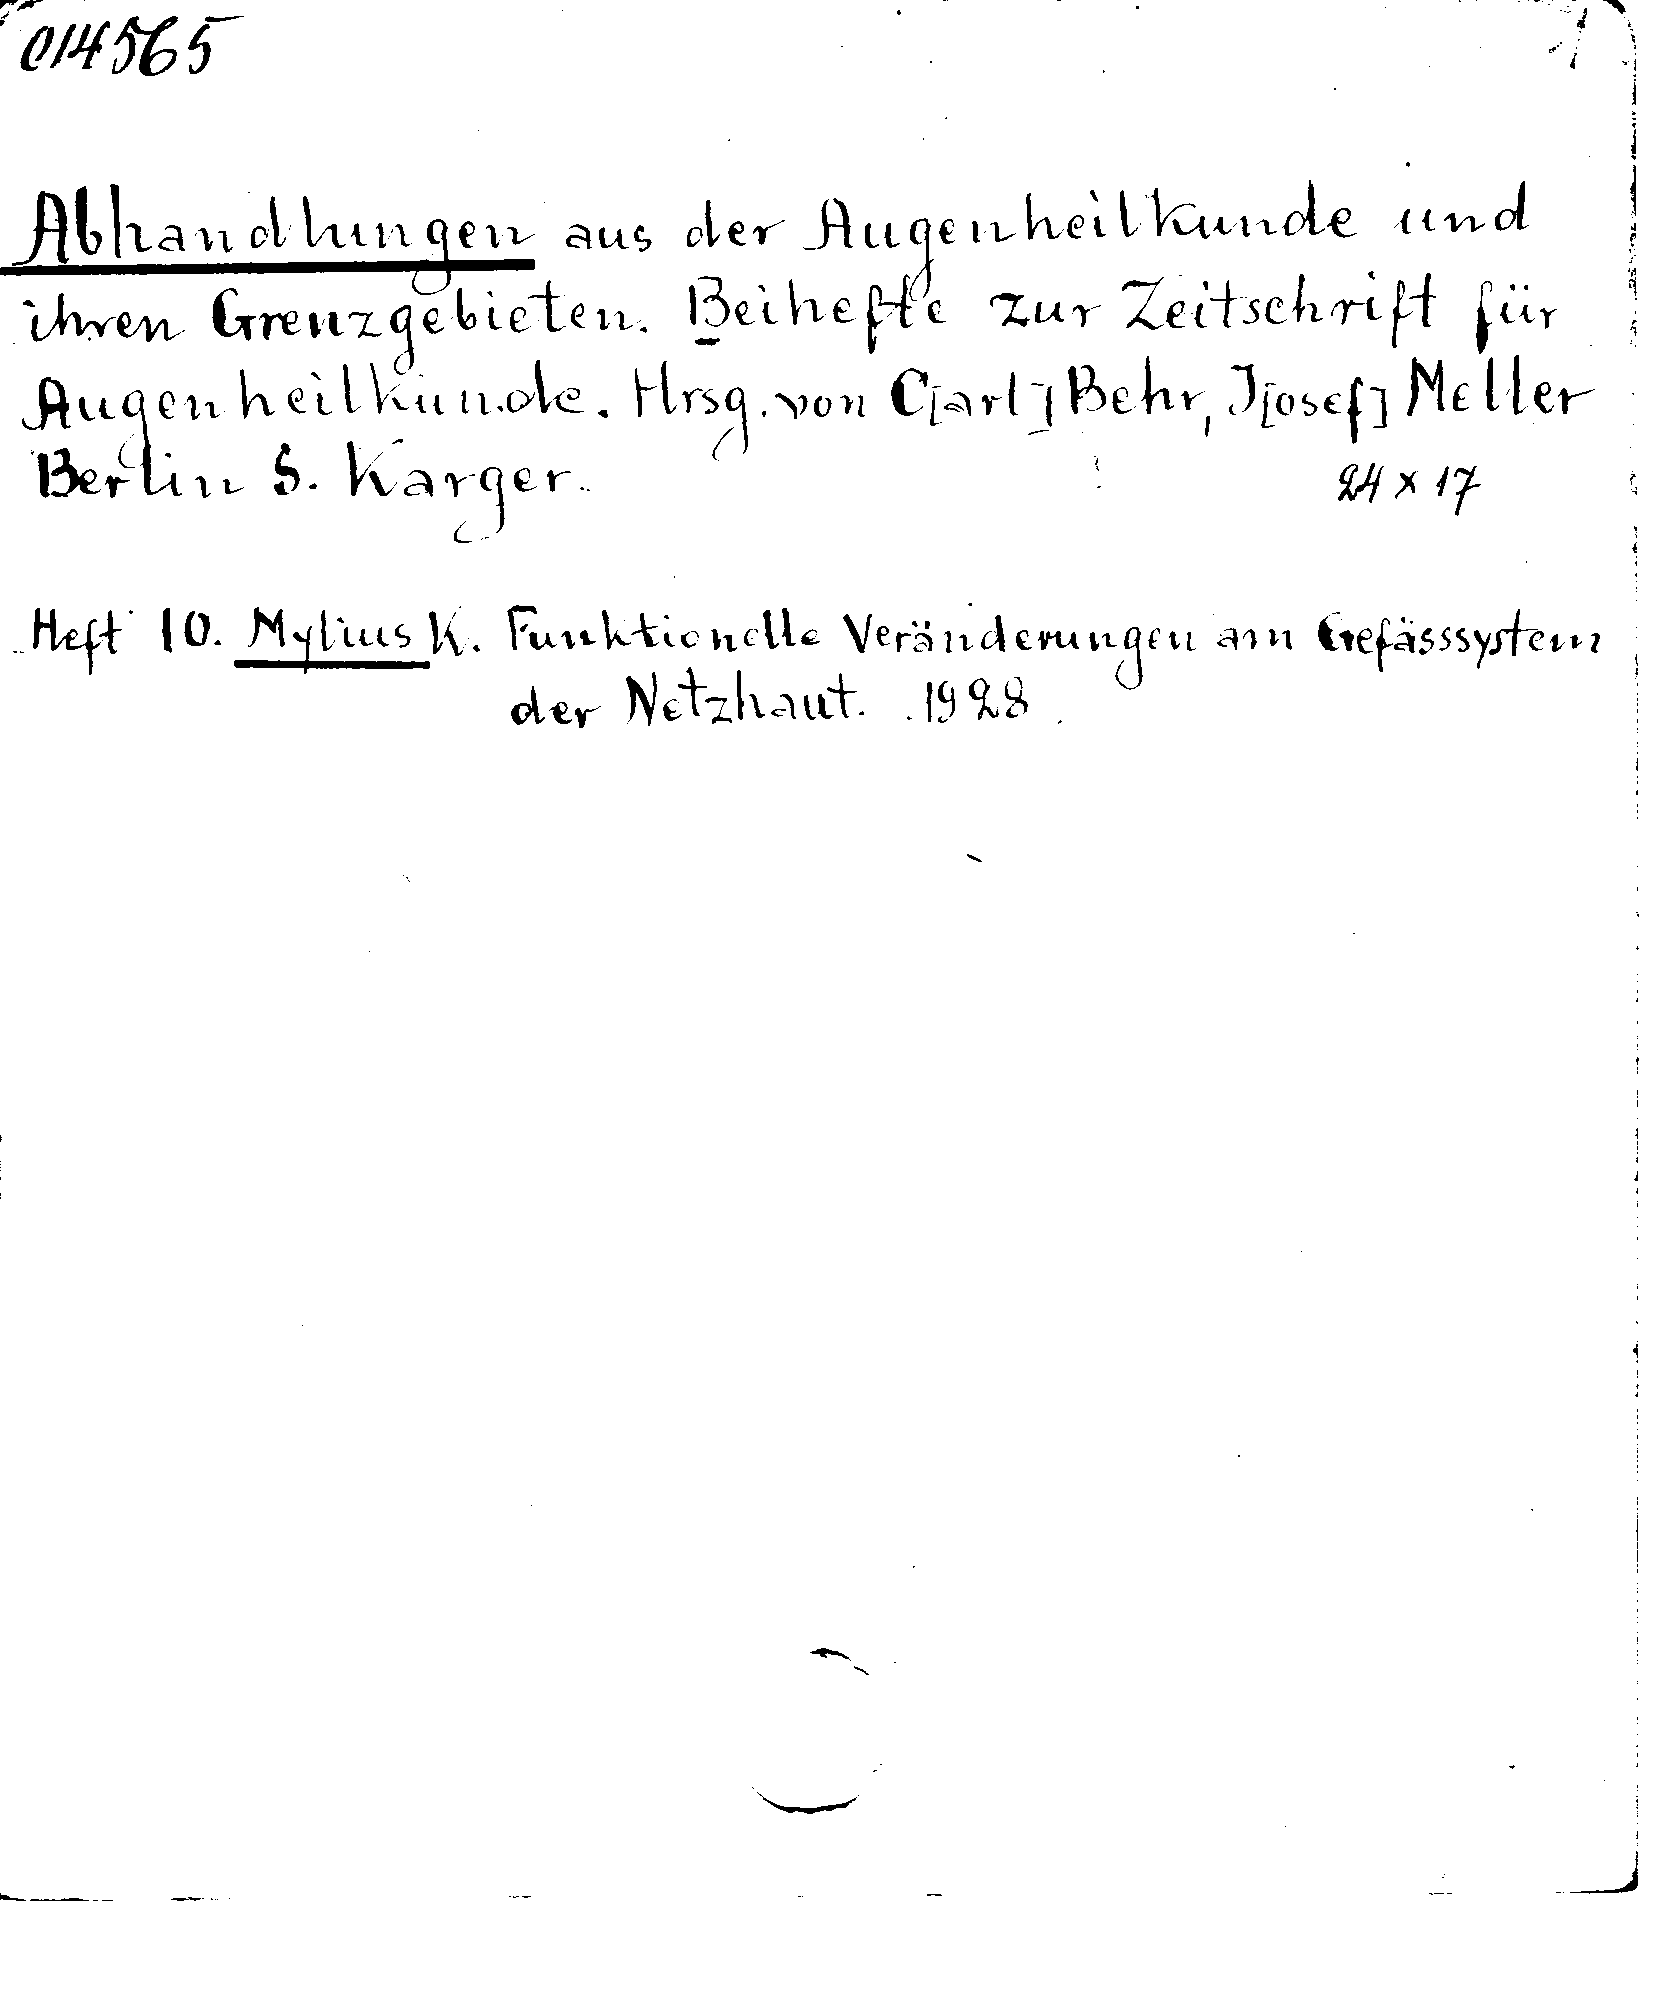 014565
Abhandlungen aus der Augenheilkunde und
ihren Grenzgebieten. Beihefte zur Zeitschrift für
Augenheilkunde. Hrsg. von C[arl] Behr, J[osef] Meller
Berlin S. Karger.
24 x 17
Heft 10. Mylius K. Funktionelle Veränderungen am Gefässsystem
der Netzhaut. 1928.